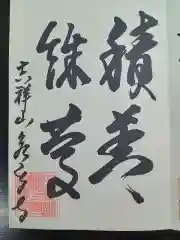 積善
餘慶
吉祥山